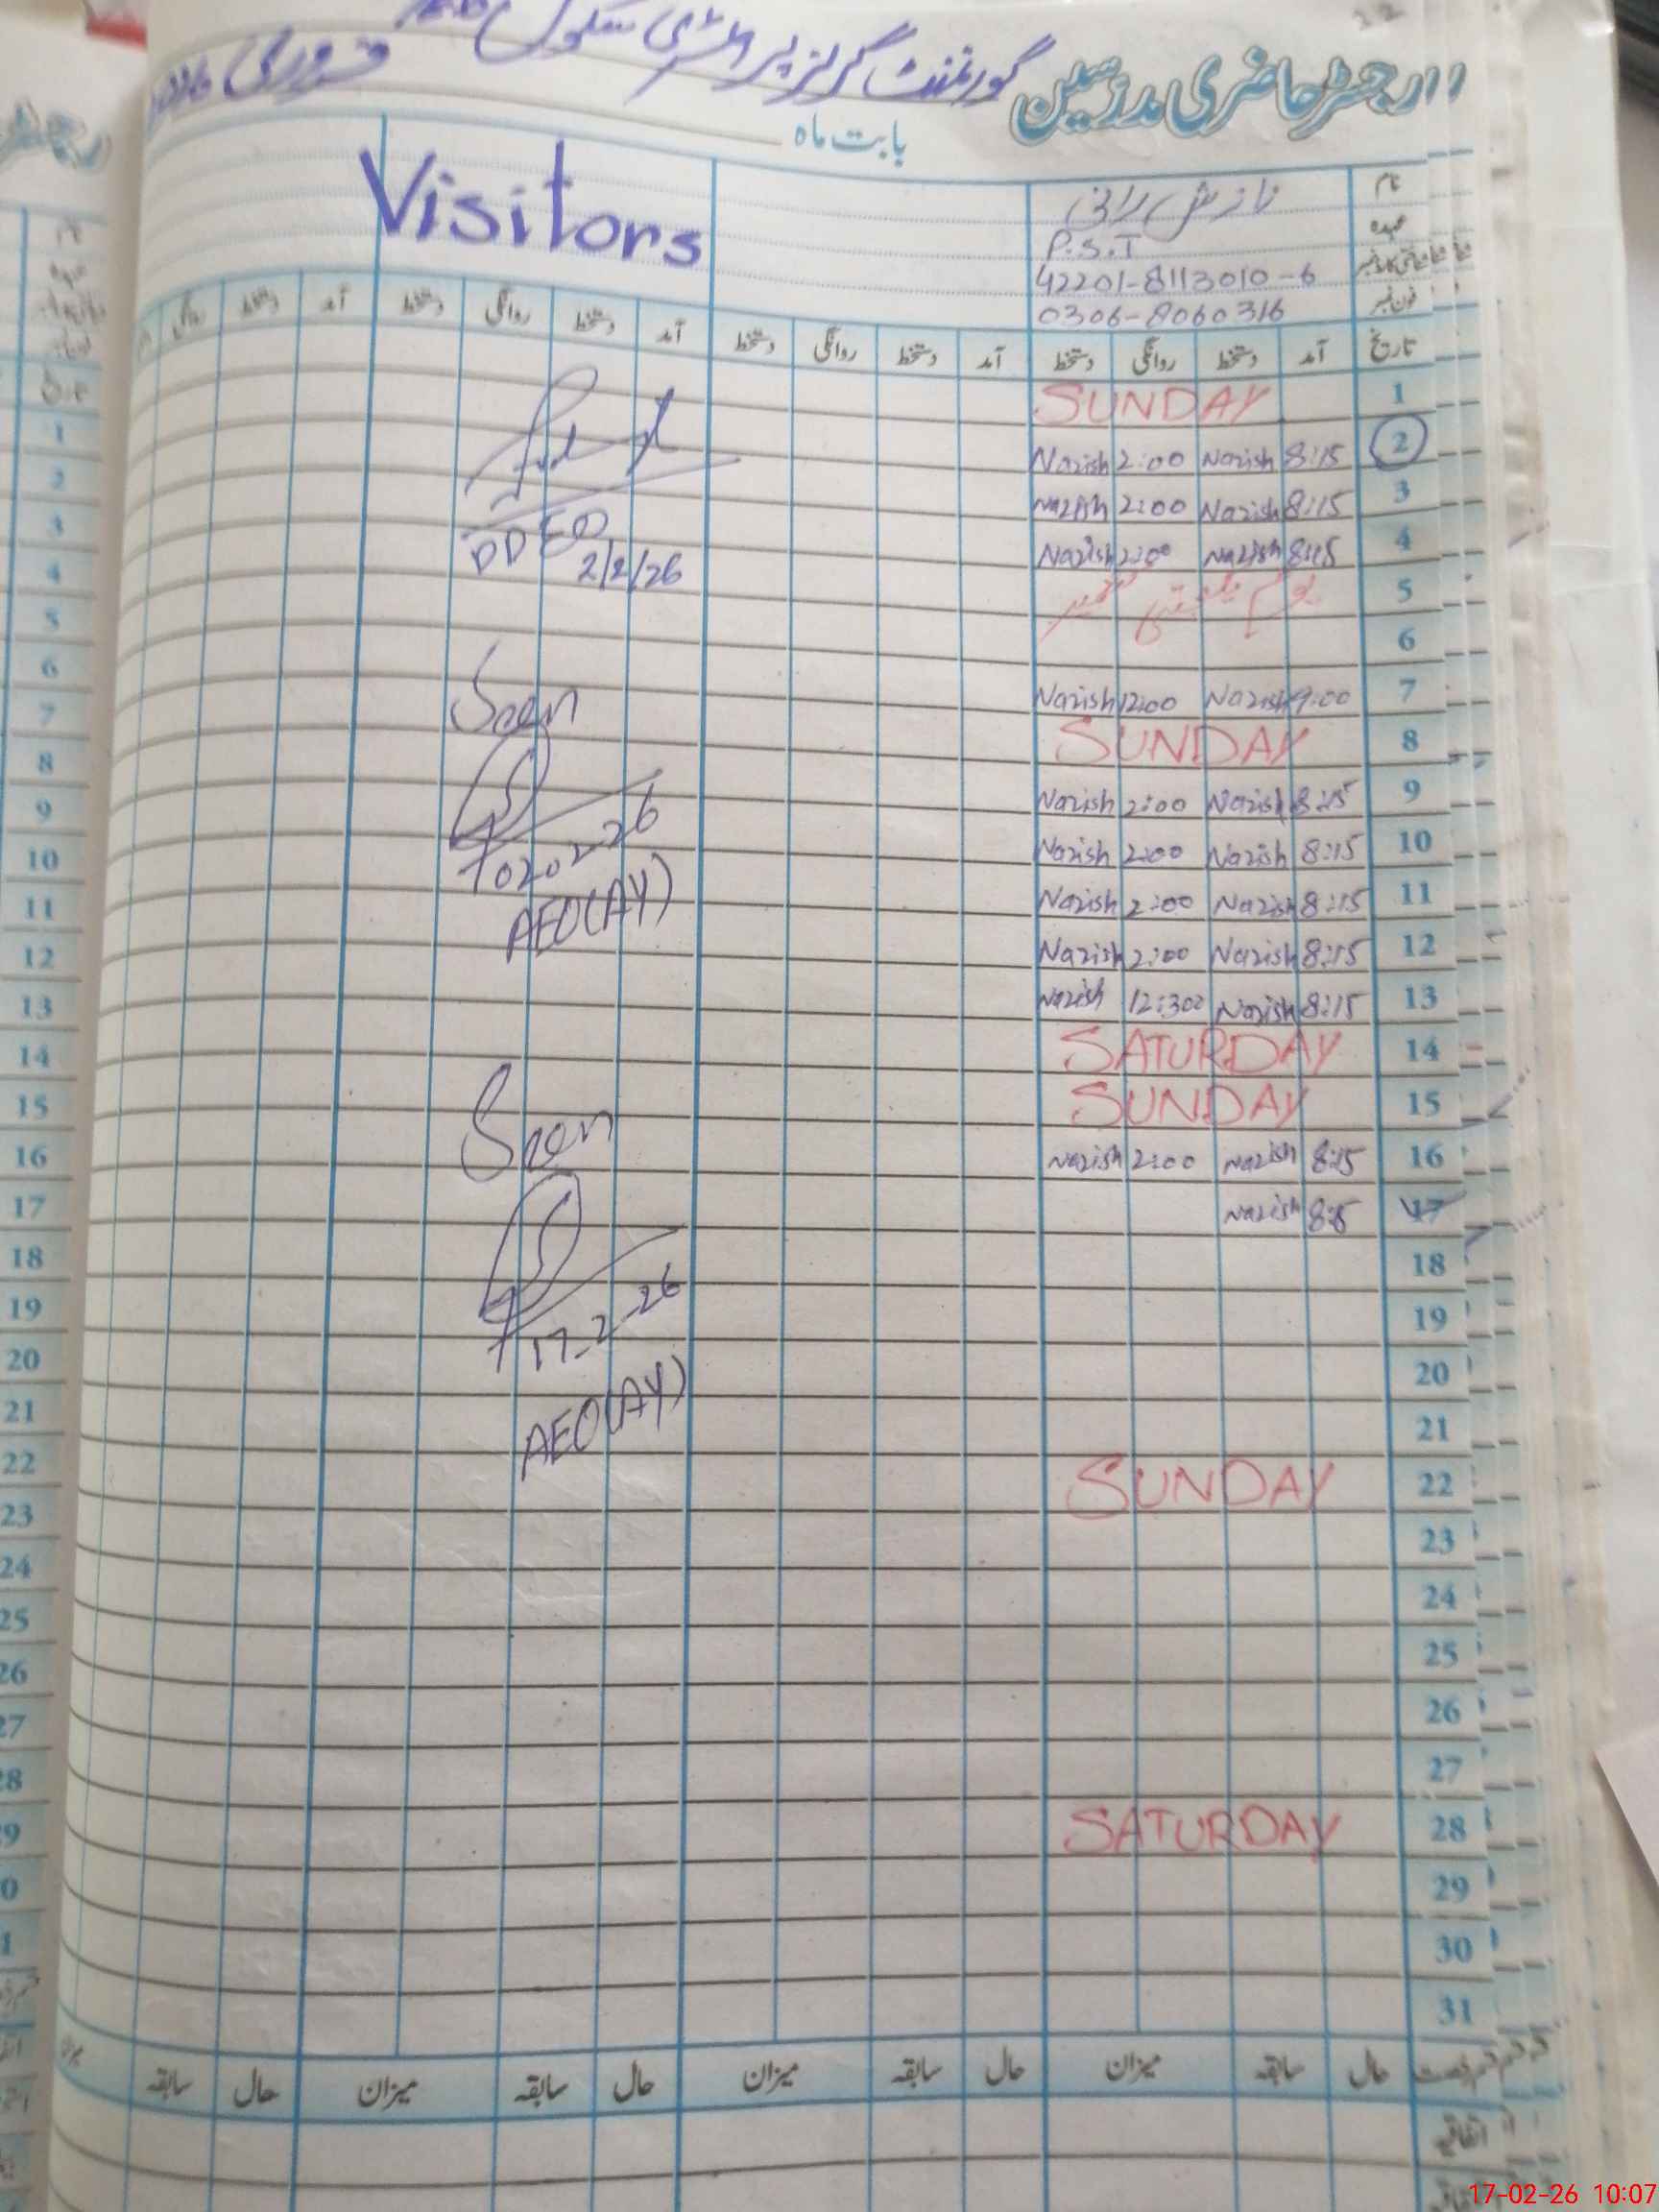 رجسٹر حاضری مدرسین گورنمنٹ گرلز پرائمری سکول
بابت ماہ فروری
Visitors
نام نازش رانی
عہدہ P.S.T
شناختی کارڈ نمبر 42201-8113010-6
فون نمبر 0306-8060316
تاریخ آمد دستخط روانگی دستخط آمد دستخط روانگی دستخط آمد دستخط روانگی دستخط آمد دستخط روانگی
1 SUNDAY
2 8:15 Nazish 2:00 Nazish
3 8:15 Nazish 2:00 Nazish
4 8:15 Nazish 2:00 Nazish
5 یوم یکجہتی کشمیر
6
7 9:00 Nazish 12:00 Nazish
8 SUNDAY
9 8:15 Nazish 2:00 Nazish
10 8:15 Nazish 2:00 Nazish
11 8:15 Nazish 2:00 Nazish
12 8:15 Nazish 2:00 Nazish
13 8:15 Nazish 12:300 Nazish
14 SATURDAY
15 SUNDAY
16 8:15 Nazish 2:00 Nazish
17 8:15 Nazish
18
19
20
21
22 SUNDAY
23
24
25
26
27
28 SATURDAY
29
30
31
DDEO
2/2/26
Seen
1002-26
AEO(AY)
Seen
17-2-26
AEO(AY)
حال سابقہ میزان حال سابقہ میزان حال سابقہ میزان حال سابقہ میزان
اتفاقیہ
1
2
3
4
5
6
7
8
9
10
11
12
13
14
15
16
17
18
19
20
21
22
23
24
25
26
27
28
17-02-26 10:07